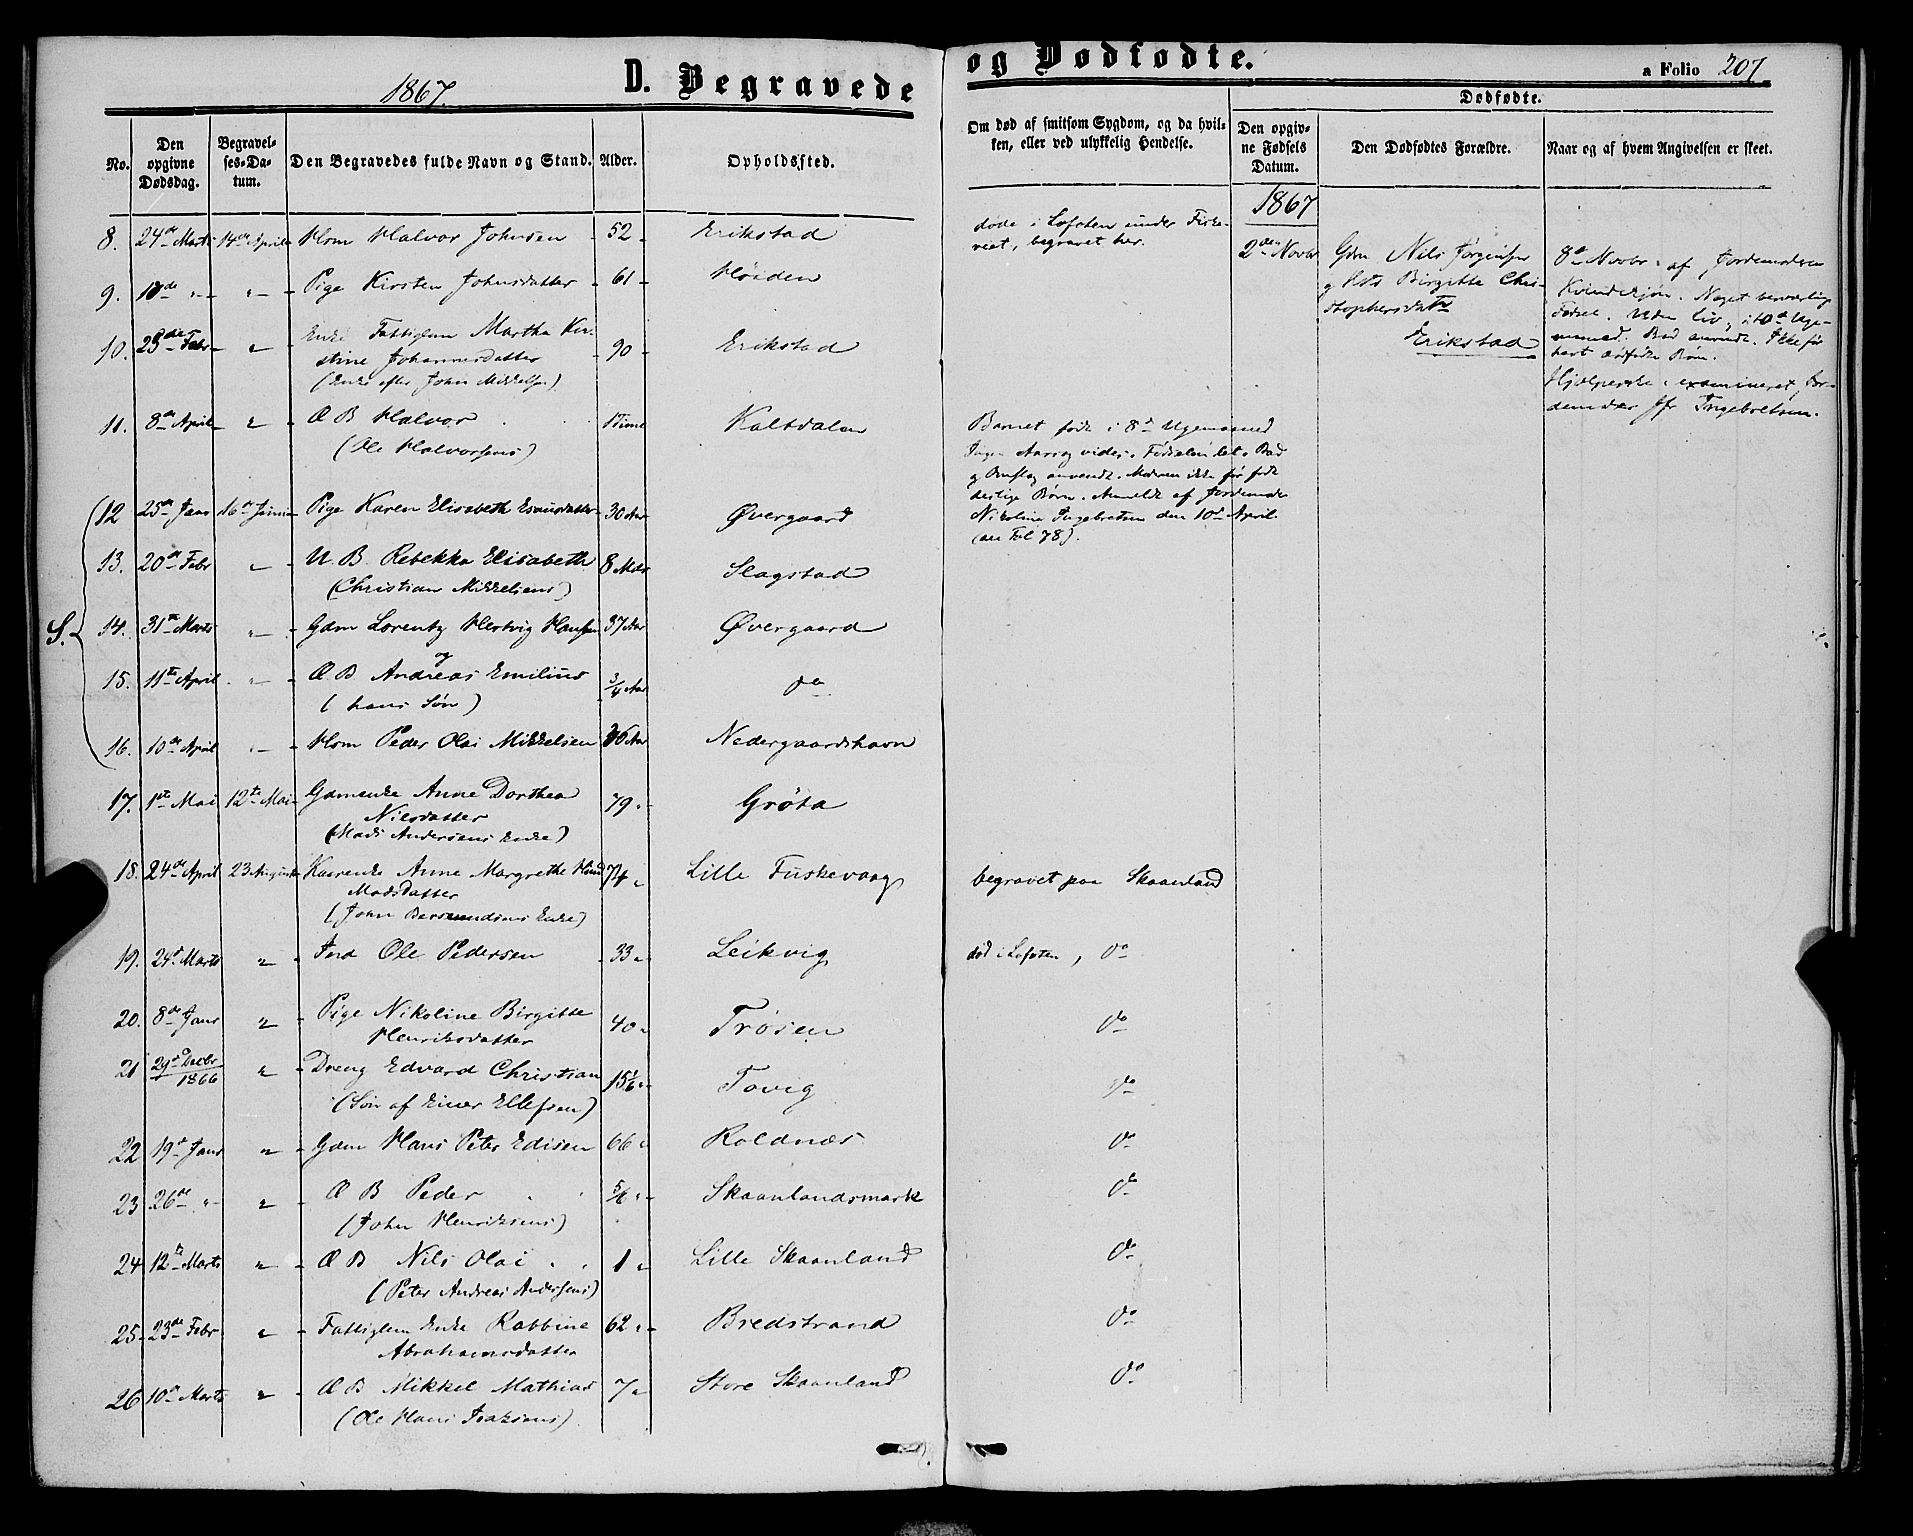 1867
D. Begravede og Dødfødte.
a Folio 207
No.
Den opgivne Dødsdag.
Begravelses-Datum.
Den Begravedes fulde Navn og Stand.
Alder.
Opholdssted.
Om død af smitsom Sygdom, og da hvilken, eller ved ulykkelig Hendelse.
Dødfødte.
Den opgivne Fødsels Datum.
Den Dødfødtes Forældre.
Naar og af hvem Angivelsen er skeet.
8. 24de Marts 14de April Hom Halvor Johnsen 52 Erikstad
døde i Lofoten under Fiske-
riet, begravet her.
9. 18de " " Pige Kirsten Johnsdatter 61 Høiden
10. 23de Febr " Enke Fattiglem Martha Kir-
stine Johannesdatter 90 Erikstad
(Enke efter John Mikkelsen)
11. 8de April " Æ B Halvor 1 Time Kaltdalen
(Ole Halvorsens)
Barnet født i 8de Ugemaaned
Ingen Aarsag vides. Fødselen let. Bad
og Omslag anvendt. Moderen ikke før født
deslige Børn. Anmeldt af Jordemoder
Nikoline Ingebretsen den 10de April.
(see Fol 78).
S.
12 25de Janr 16de Juni Pige Karen Elisabeth Esaiasdatter 30 Aar Øvergaard
13. 20de Febr " U. B. Rebekka Elisabeth 8 Mdr Slagstad
(Christian Mikkelsens)
14. 31te Marts " Gdm Lorentz Hertvig Hansen 37 Aar Øvergaard
og
15. 11te April " Æ B Andreas Emilius 3/4 Aar do
(hans Søn)
16. 10de April " Hom Peder Olai Mikkelsen 36 Aar Nedergaardshavn
17. 1ste Mai 12te Mai Gdmenke Anne Dorthea 79 " Grøta
Nilsdatter
(Mads Andersens Enke)
18. 24de April 23 August Kaarenke Anne Margrethe 74 " Lille Fuskevaag begravet paa Skaanland
Madsdatter
(John Bersvendsens Enke)
19. 24de Marts " Ind Ole Pedersen 33 " Leikvig død i Lofoten, do
20. 8de Janr " Pige Nikoline Birgitte 40 " Trøsen do
Henriksdatter
21 29de Decbr 1866 " Dreng Edvard Christian 15 1/6 " Tovig do
(Søn af Einer Ellefsen)
22 19de Janr " Gdm Hans Peter Edisen 66 " Roldnæs do
23 26de " " Æ B Peder 5/6 " Skaanlandsmark do
(John Henriksens)
24 12te Marts " Æ B Nils Olai 1 " Lille Skaanland do
(Peter Andreas Andersens)
25 23de Febr " Fattiglem Enke Robbine 62 " Bredstrand do
Abrahamsdatter
26 10de Marts " Æ B Mikkel Mathias 7 " Store Skaanland do
(Ole Hans Isaksens)
1867
2den Novbr
Gdm Nils Jørgensen
og Birgitte Chri-
stophersdatter
Erikstad
8de Novbr. af Jordemoderen
Kvindesjon. Noget besværlig
Fødsel. Uden liv, i 10de Uge-
maaned. Bad anvendt. Ikke før
havt dødfødte Børn.
Hjælperske: examineret Jor-
demoder Jfr Ingebretsen.